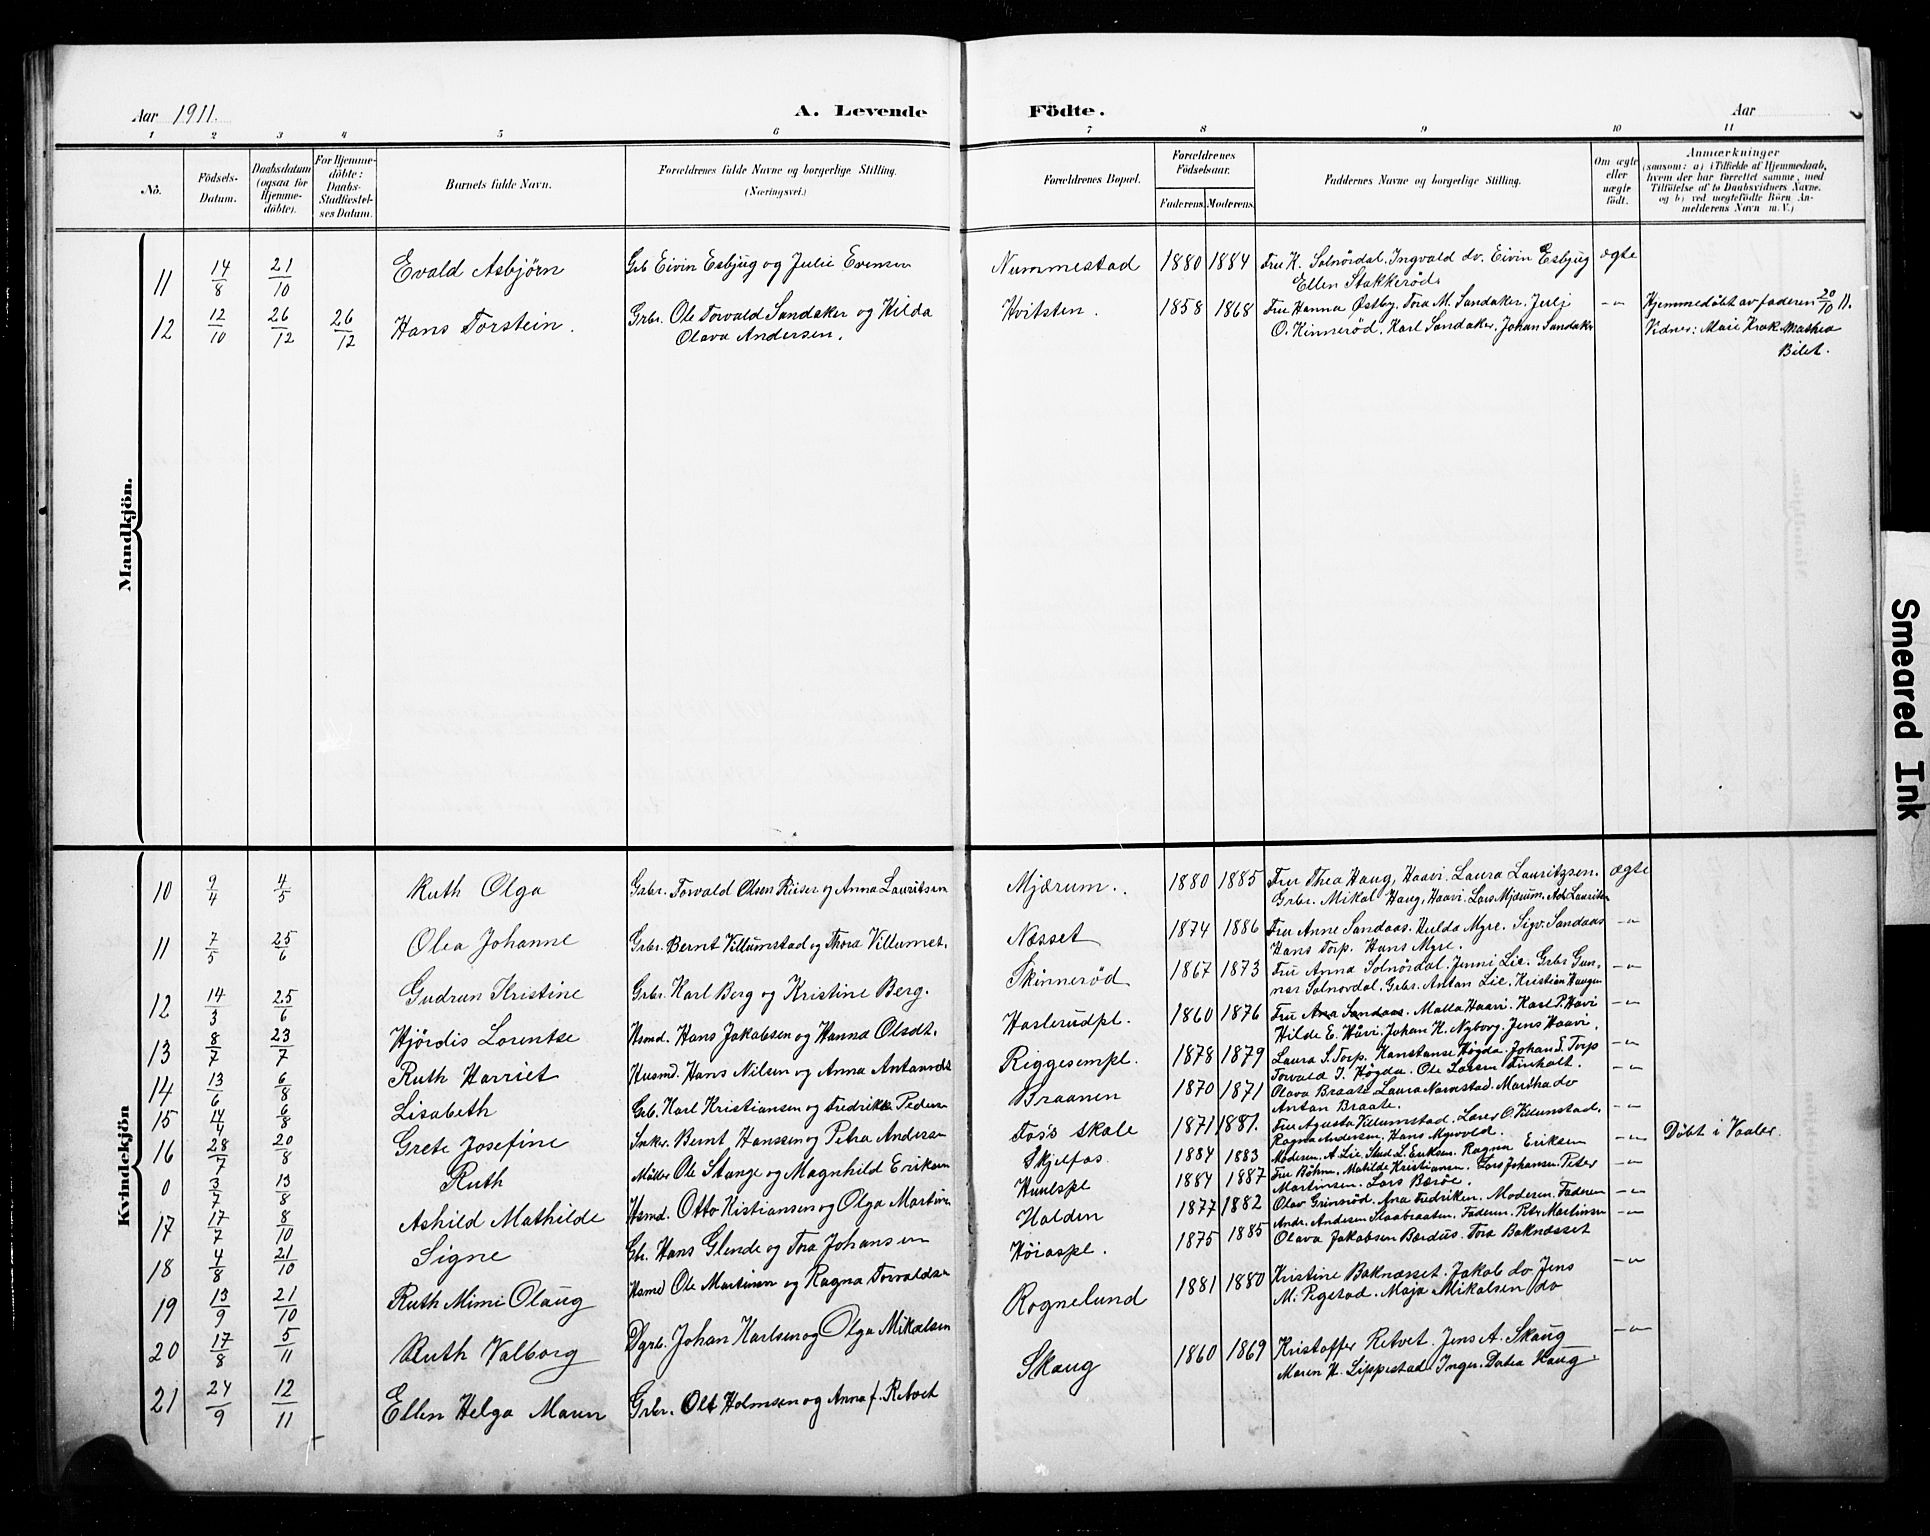 Aar 1911.
A. Levende Födte.
Aar
1 2 3 4 5 6 7 8 9 10 11
No.
Födsels-Datum.
Daabsdatum (ogsaa for Hjemmedöbte).
For Hjemmedöbte: Daabs-Stadfæstelses Datum.
Barnets fulde Navn.
Forældrenes fulde Navne og borgerlige Stilling.
(Næringsvei.)
Forældrenes Bopæl.
Forældrenes Födselsaar.
Faderens. Moderens.
Faddernes Navne og borgerlige Stilling.
Om ægte eller uægte födt.
Anmærkninger
(saasom: a) i Tilfælde af Hjemmedaab, hvem der har forrettet samme, med Tilföielse af to Daabsvidners Navne. og b) ved uægtefödte Börn Anmelderens Navn m. V.)
Mandkjön.
11 14/8 21/10 Evald Asbjørn Grb Eivin Esbjug og Julie Evensen Nummestad 1880 1884 Fru K. Solnördal, Ingvald do. Eivin Esbjug ægte
Ellen Stakkerød
12 12/10 26/12 26/12 Hans Torstein. Grbr. Ole Torvald Sandaker og Hilda Hvitsten. 1858 1868 Fru Hanna Østby, Tora M. Sandaker, Julj -"- Hjemmedöbt av faderen 20/10 11.
Olava Andersen. O. Kinnerød. Karl Sandaker, Johan Sandaker Vidner: Maie Krok Mathea
Bilet.
Kvindekjön
10 9/4 4/5 Ruth Olga Grbr. Torvald Olsen Riiser og Anna Lauritsen Mjærum. 1880 1885 Fru Thea Haug, Haavi. Laura Lauritzsen. ægte
Grbr. Mikal Haug, Haavi. Lars Mjærum. Ad. Lauritsen
11 7/5 25/6 Olea Johanne Grbr. Bernt Villumstad og Thora Villumst. Næsset 1874 1886 Fru Anne Sandaas. Hulda Myre. Sigv. Sandaas -"-
Hans Torp. Hans Myre.
12 14/3 25/6 Gudrun Kristine Grbr. Karl Berg og Kristine Berg. Skinnerød 1867 1873 Fru Anna Solnördal. Jenni Lie. Grbr Gun- -"-
nar Solnordal. Grbr. Anton Lie. Kristian Haugen
13 8/7 23/7 Hjördis Lorentse Hsmd. Hans Jakobsen og Hanna Olsdt. Haslerudpl. 1860 1876 Fru Ana Sandaas. Malla Haavi. Karl P. Havi -"-
Hilde E. Håvi. Johan H. Nyborg. Jens Haavi.
14 13/6 6/8 Ruth Harriet Husmd. Hans Nilsen og Anna Antonsdt Riggesempl. 1878 1879 Laura S. Torp. Konstanse Høgda. Johan E. Torp -"-
Torvald J. Høgda. Ole Larsen
15 14/4 6/8 Lisabeth Grb. Karl Kristiansen og Fredrikke Peders Braanen 1870 1871 Olava Braate Laura Narvestad. Martha do -"-
Anton Braate.
16 28/7 20/8 Grete Josefine Snkr. Bernt Hanssen og Petra Andersen Foss skole 1871 1881. Fru Agusta Villumstad. Lars O Villumstad. -"-
Ragna Andersen. Hans Myrvold.
0 3/7 13/8 Ruth Müller Ole Stange og Magnhild Eriksen Skjelfos 1884 1883 Moderen. A Lie. Stud L. Eriksen. Ragna Eriksen -"- Döbt i Vaaler.
17 17/7 8/10 Ashild Mathilde Hsmd. Otto Kristiansen og Olga Martins Huulspl 1884 1887 Fru Böhm. Matilde Kristiansen. Lars Johansen. Peter -"-
Martinsen. Lars Bærøe.
18 4/8 21/10 Signe Gbr. Hans Glende og Tora Johansen Halden 1877 1882 Olav Grinsrød. Ana Fredriken. Moderen. Faderen -"-
19 13/9 21/10 Ruth Mimi Olaug Hsmd Ole Martinsen og Ragna Torvaldsen Høiaspl. 1875 1885 Andr. Andersen Slaabraaten. Faderen. Petr. Martinsen -"-
Olava Jakobsen Bærdus. Tora Baknæsset
20 17/8 5/11 Ruth Valborg Dgrb. Johan Karlsen og Olga Mikalsen Rognelund 1881 1880 Kristine Baknæsset. Jakob do Jens -"-
M. Rgstad. Maja Mikalsen do
21 24/9 12/11 Ellen Helga Maren Grbr. Olt Holmsen og Anna f. Retvet Skaug 1860 1869 Kristoffer Retvet. Jens A. Skaug -"-
Maren H. Lippestad. Inger. Dotea Haug.
Smeared Ink